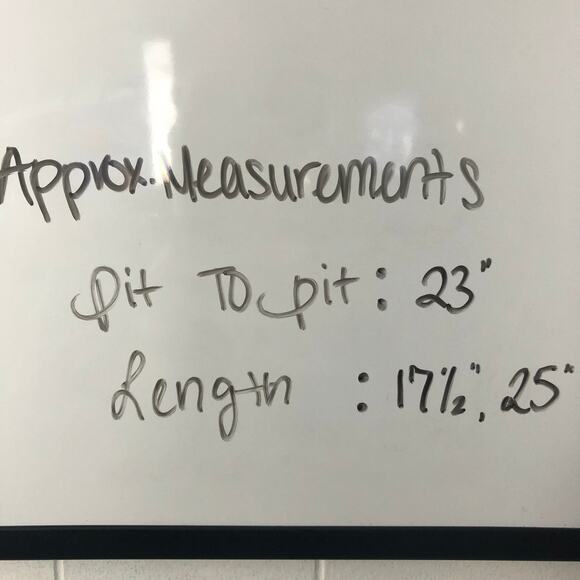 Approx. Measurements
Pit To pit: 23"
Length : 17½", 25"